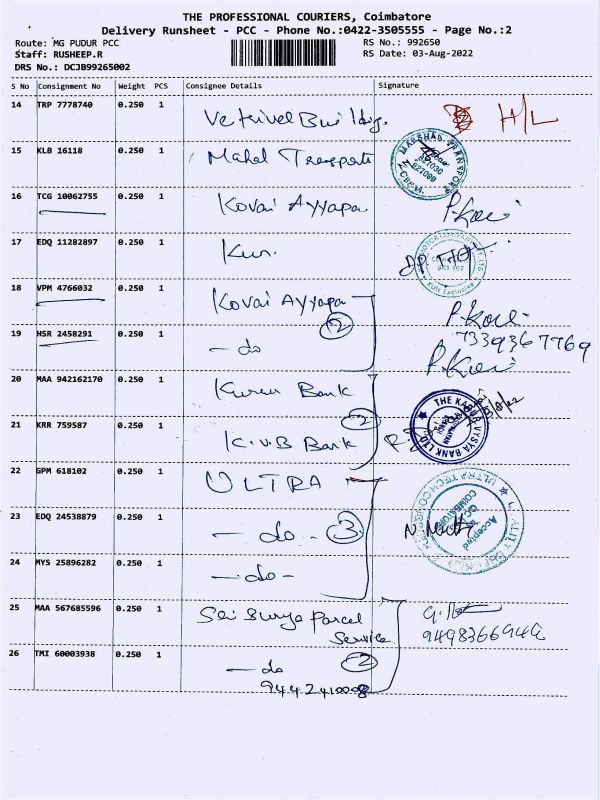 THE PROFESSIONAL COURIERS, Coimbatore
Delivery Runsheet - PCC - Phone No.:0422-3505555 - Page No.:2
Route: MG PUDUR PCC
Staff: RUSHEEP.R
DRS No.: DCJB99265002
RS No.: 992650
RS Date: 03-Aug-2022
S No Consignment No Weight PCS Consignee Details Signature
14 TRP 7778740 0.250 1 Vetrivel Building. H/L
15 KLB 16118 0.250 1 Mahal Transports
16 TCG 10062755 0.250 1 Kovai Ayyapa P.Kavi
17 EDQ 11282897 0.250 1 Kun.
18 VPM 4766032 0.250 1 Kovai Ayyapa
19 HSR 2458291 0.250 1 - do 2 7339367769
20 MAA 942162170 0.250 1 Bank
21 KRR 759587 0.250 1 K.V.B Bank 2 THE KARUR VYSYA BANK LTD
22 GPM 618102 0.250 1 ULTRA
23 EDQ 24538879 0.250 1 - do - 3 Accepted
24 MYS 25896282 0.250 1 - do -
25 MAA 567685596 0.250 1 Sai Surya Parcel
Service
26 TMI 60003938 0.250 1 - do 2
9442410008